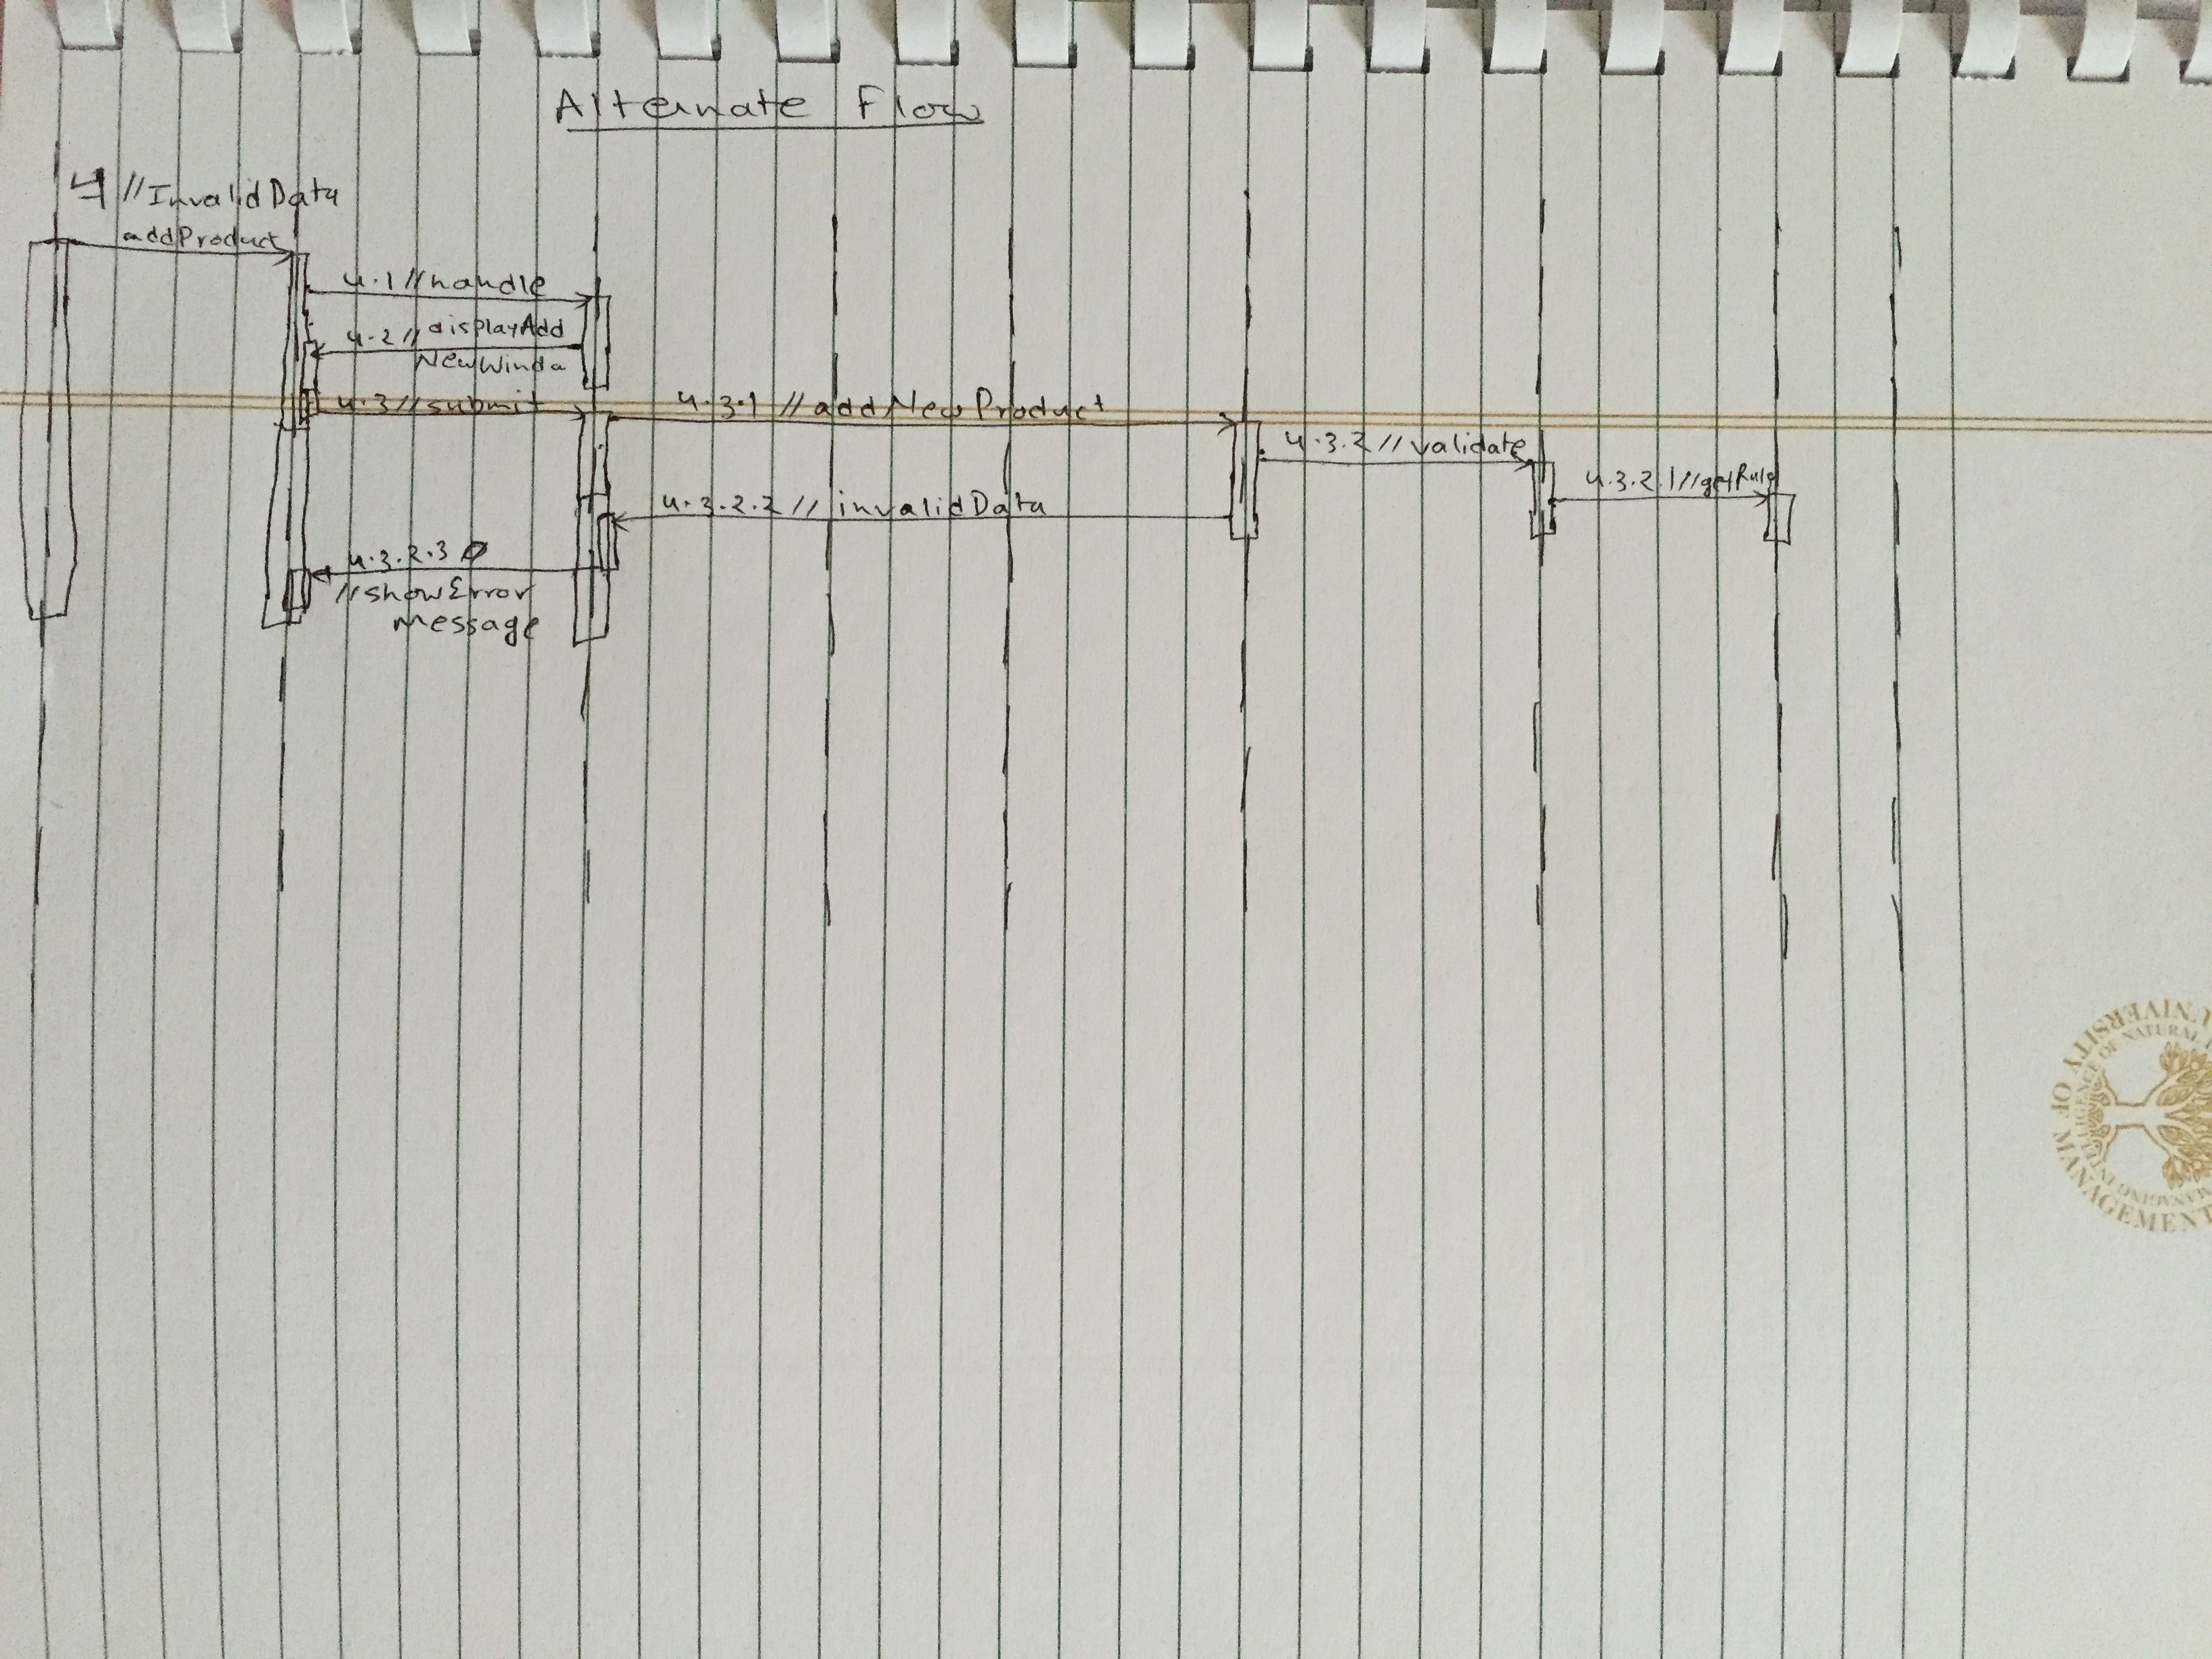 Alternate Flow
4 //InvalidData
addProduct
4.1 //handle
4.2 // displayAdd
NewWindo
4.3 //submit
4.3.1 //addNewProduct
4.3.2 //validate
4.3.2.1 //getRule
4.3.2.2 // invalidData
4.3.2.3
//showError
Message
UNIVERSITY OF MANAGEMENT
OF NATURAL